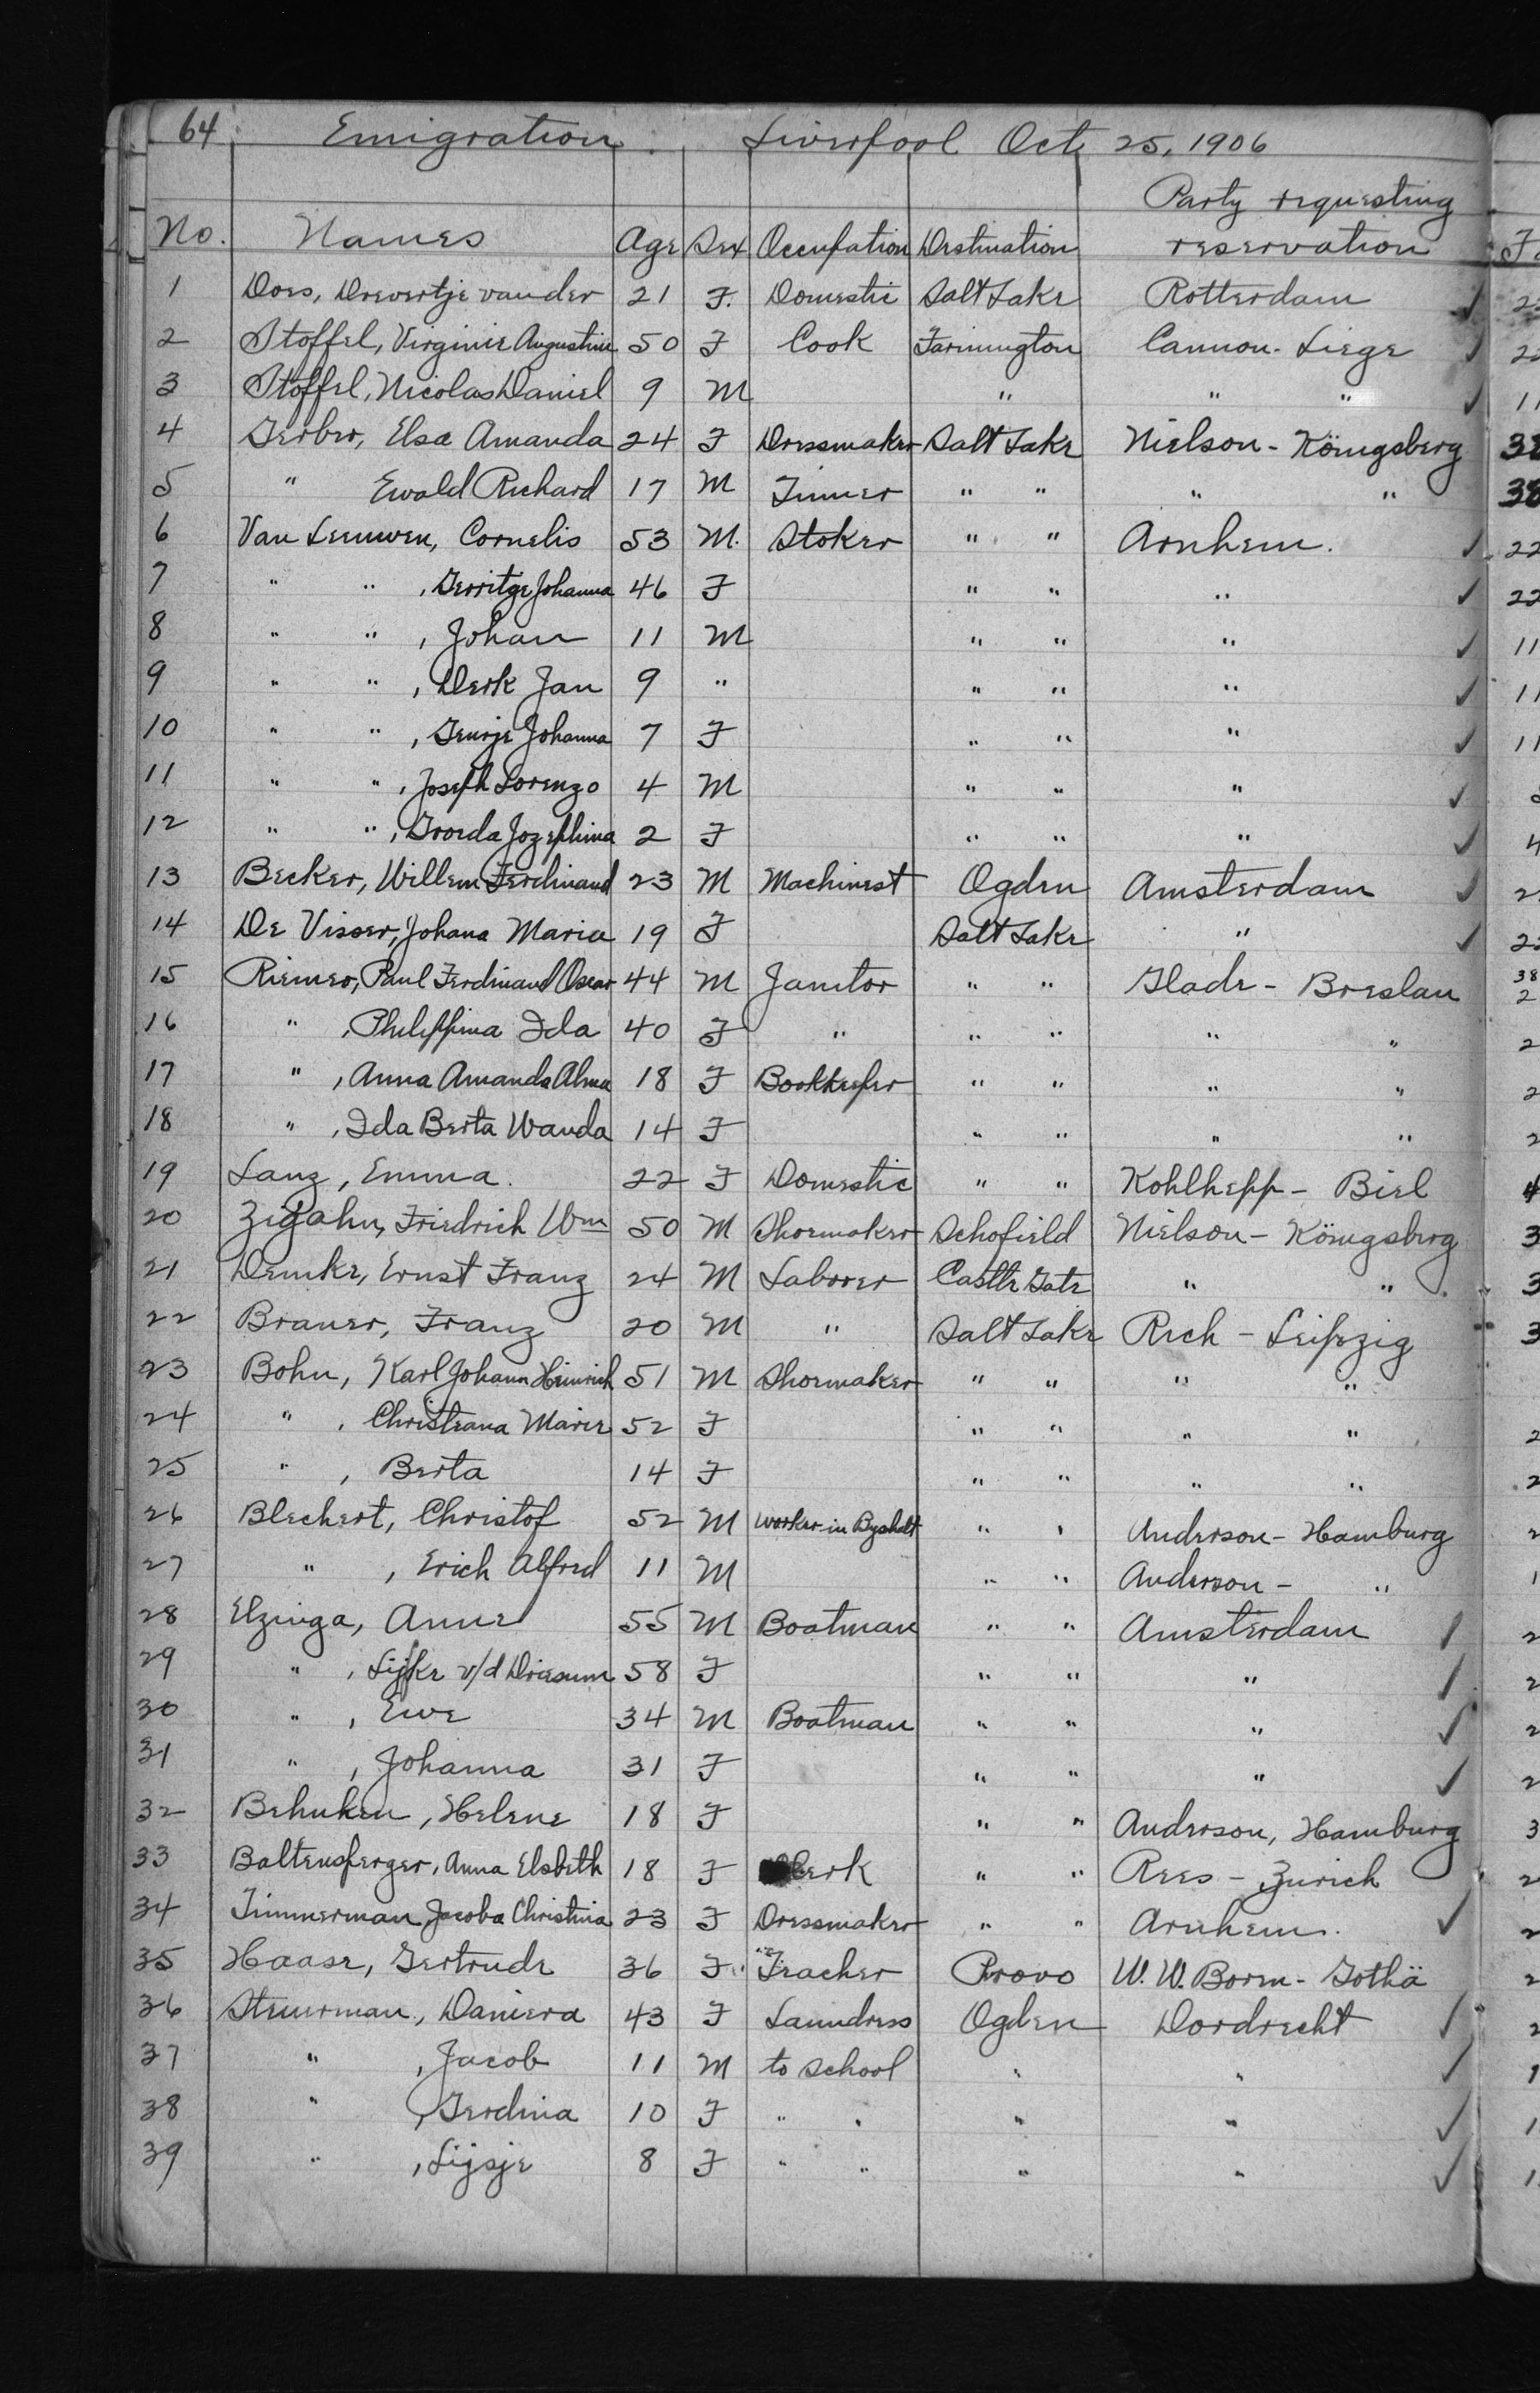 64 Emigration. Liverpool Oct. 25, 1906
Party requesting
No. Names Age Sex Occupation Destination reservation
1 Does, Drevertje vander 21 F. Domestic Salt Lake Rotterdam ✓
2 Stoffel, Virginie Augustine 50 F Cook Farmington Cannon - Liege ✓
3 Stoffel, Nicolas Daniel 9 M " " " ✓
4 Gerber, Elsa Amanda 24 F Dressmaker Salt Lake Nielson - Königsberg
5 " Ewald Richard 17 M Tinner " " " "
6 Van Leeuwen, Cornelis 53 M. Stoker " " Arnhem. ✓
7 " " , Gerritje Johanna 46 F " " " ✓
8 " " , Johan 11 M " " " ✓
9 " " , Derk Jan 9 " " " " ✓
10 " " , Geurje Johanna 7 F " " " ✓
11 " " , Joseph Lorenzo 4 M " " " ✓
12 " " , Groeda Jozephina 2 F " " " ✓
13 Becker, Willem Ferdinand 23 M Machinest Ogden Amsterdam ✓
14 De Visser, Johana Maria 19 F Salt Lake " ✓
15 Riemer, Paul Ferdinand Oscar 44 M Janitor " " Glade - Breslau
16 " , Philippina Ida 40 F " " " " "
17 " , Anna Amanda Alma 18 F Bookkeeper " " " "
18 " , Ida Berta Wanda 14 F " " " "
19 Lanz, Emma. 22 F Domestic " " Kohlhepp - Biel
20 Zigahn, Friedrich Wm 50 M Shoemaker Schofield Nielson - Königsberg
21 Demke, Ernst Franz 24 M Laborer Castle Gate " "
22 Brauer, Franz 20 M " Salt Lake Rich - Leipzig
23 Bohn, Karl Johann Heinrich 51 M Shoemaker " " " "
24 " , Christeana Marie 52 F " " " "
25 " , Berta 14 F " " " "
26 Blechert, Christof 52 M worker in " " Anderson - Hamburg
27 " , Erich Alfred 11 M " " Anderson - "
28 Elzinga, Anne 55 M Boatman " " Amsterdam ✓
29 " , Sijke v/d Driesum 58 F " " " ✓
30 " , Ewe 34 M Boatman " " " ✓
31 " , Johanna 31 F " " " ✓
32 Behnken, Helene 18 F " " Anderson, Hamburg
33 Baltensperger, Anna Elsbeth 18 F Clerk " " Rees - Zurich
34 Timmerman, Jacoba Christina 23 F Dressmaker " " Arnhem. ✓
35 Haase, Gertrude 36 F " Teacher Provo W. W. Borm - Gothä
36 Steuerman, Daniera 43 F Laundress Ogden Dordrecht ✓
37 " , Jacob 11 M to school " " ✓
38 " , Gerdina 10 F " " " " ✓
39 " , Sijsje 8 F " " " " ✓